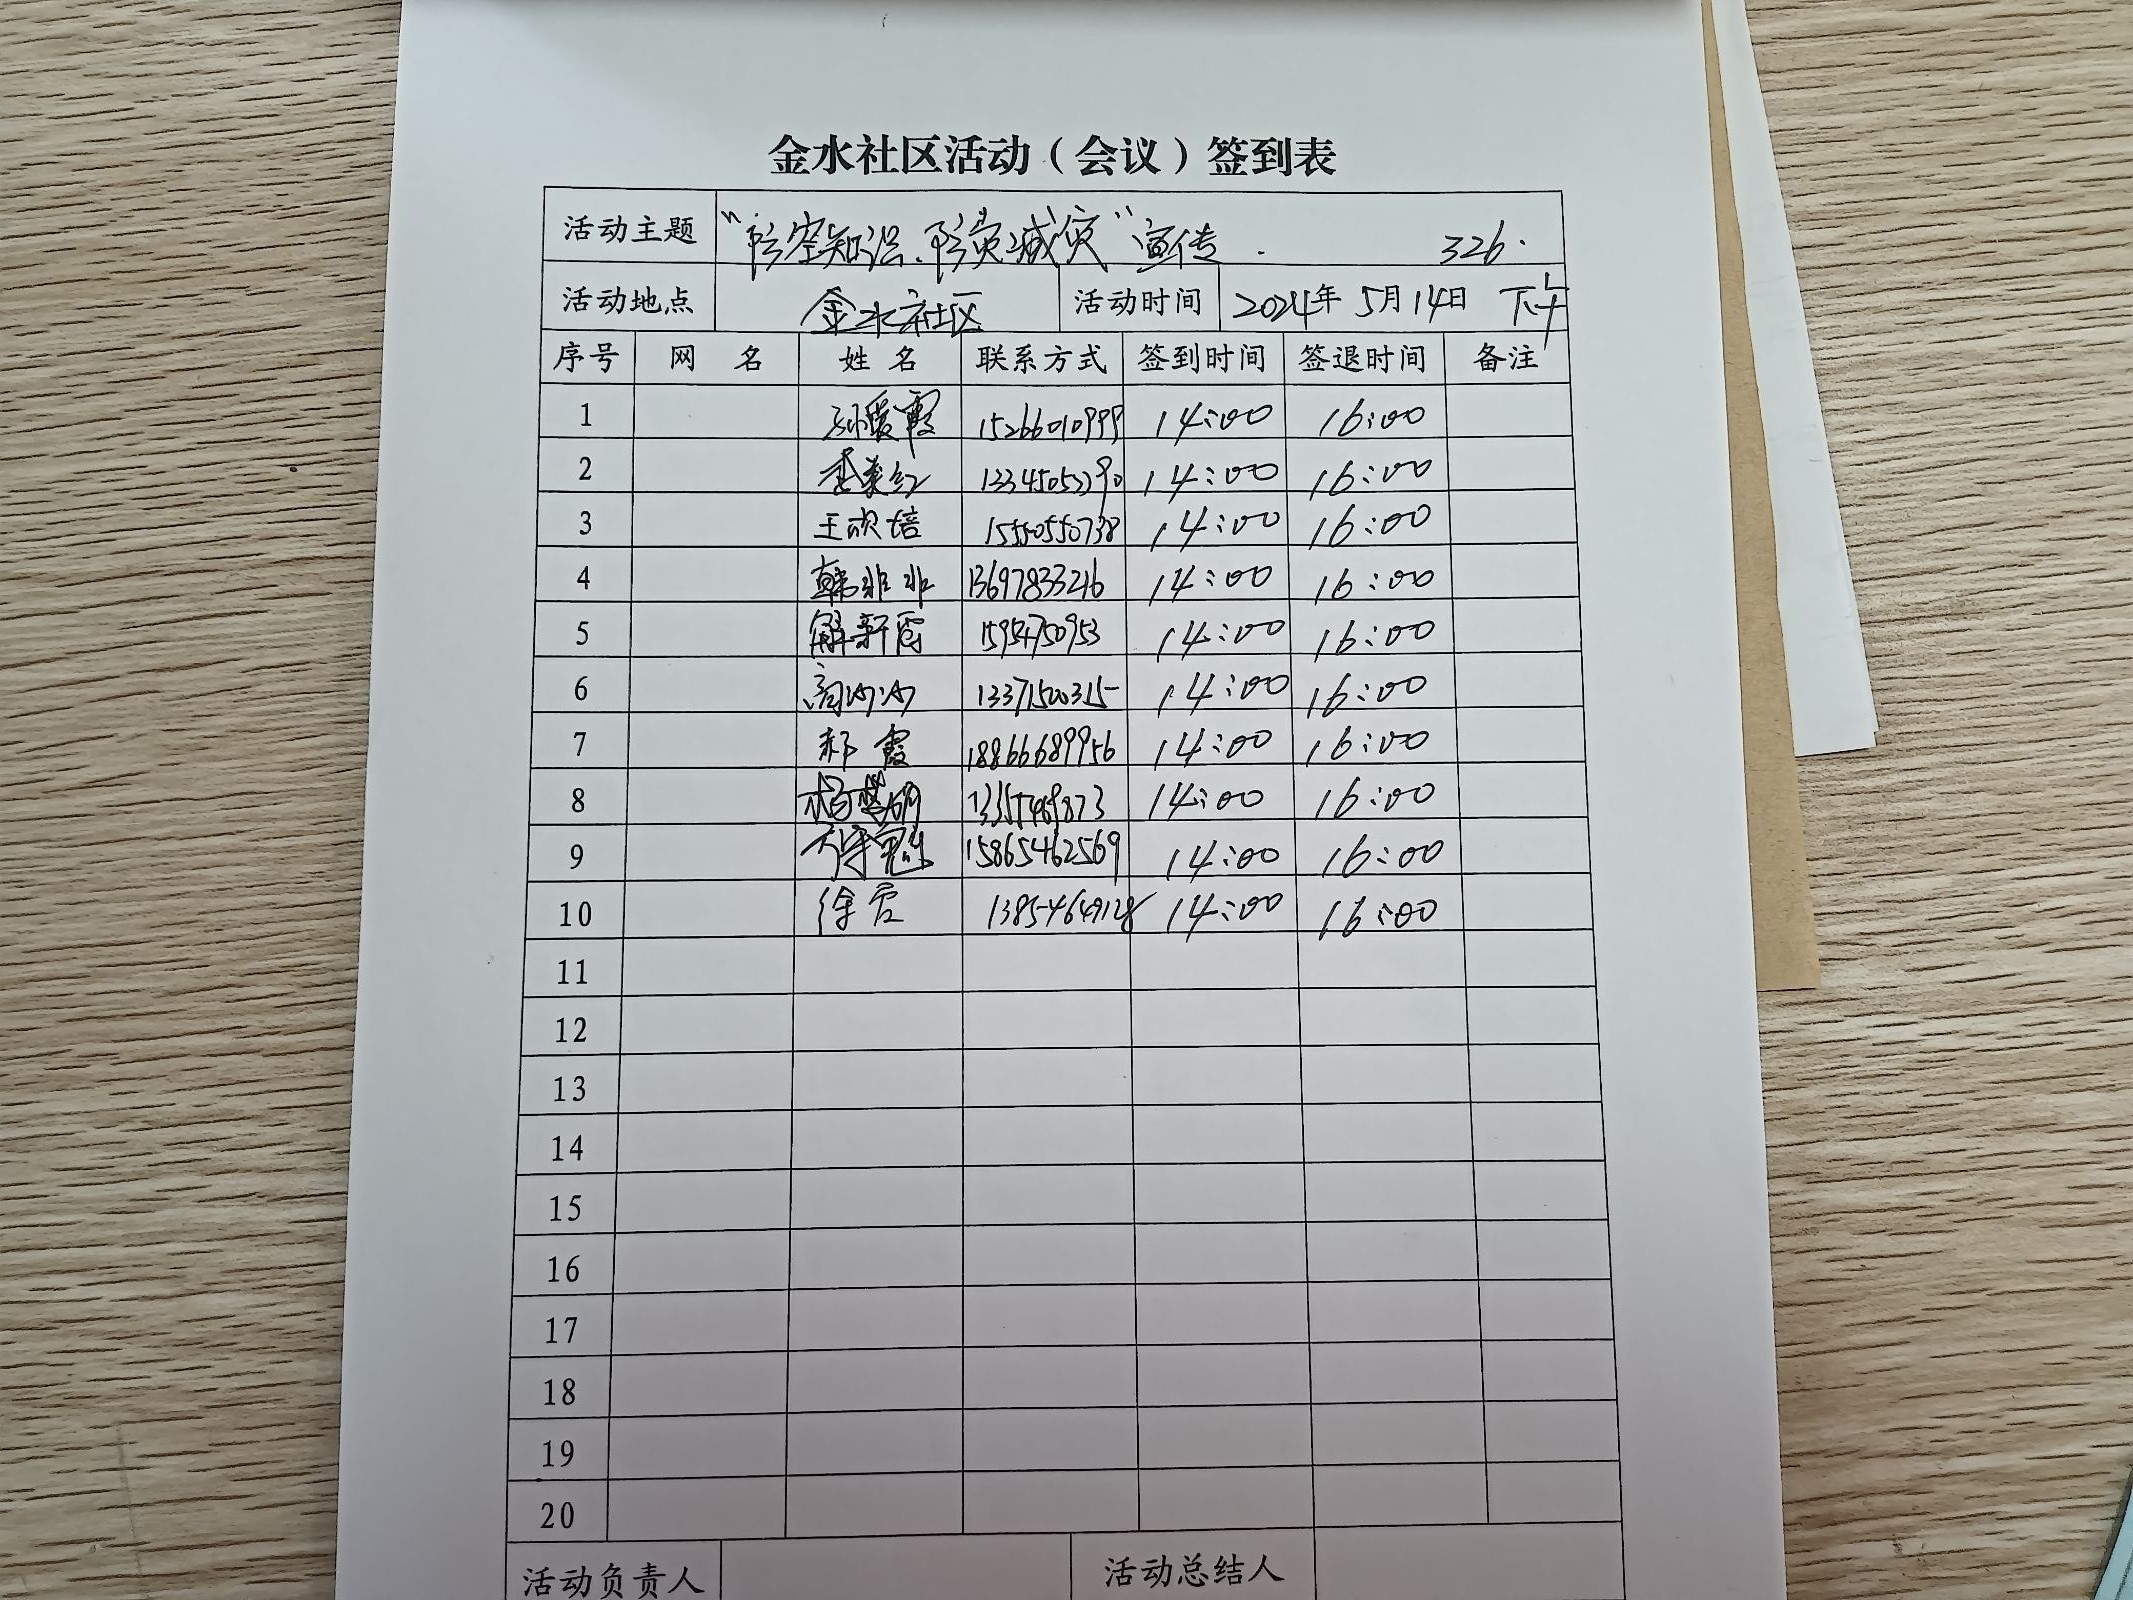 金水社区活动（会议）签到表
活动主题 "防空知识、防灾减灾"宣传. 326.
活动地点 金水社区 活动时间 2024年 5月14日 下午
序号 网 名 姓 名 联系方式 签到时间 签退时间 备注
1 孙爱霞 15266010999 14:00 16:00
2 14:00 16:00
3 王欣培 15550550738 14:00 16:00
4 韩非非 13697833216 14:00 16:00
5 解新霞 15954750953 14:00 16:00
6 高沙沙 13371500315 14:00 16:00
7 郝霞 18866689956 14:00 16:00
8 14:00 16:00
9 15865462569 14:00 16:00
10 徐君 13854649128 14:00 16:00
11
12
13
14
15
16
17
18
19
20
活动负责人 活动总结人